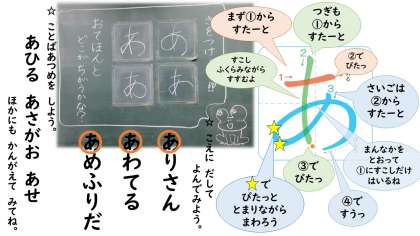 まず①から
すたーと
つぎも
①から
すたーと
②で
ぴたっ
すこし
ふくらみながら
すすむよ
さいごは
②から
すたーと
まんなかを
とおって
①にすこしだけ
はいるね
③で
ぴたっ
④で
すうっ
★で
ぴたっと
とまりながら
まわろう
1
2
3
おてほんと
どこがちがうかな?
あ
あ
あ
あ
☆ こえに だして
よんでみよう。
ありさん
あわてる
あめふりだ
☆ ことばあつめを しよう。
あひる あさがお あせ
ほかにも かんがえて みてね。